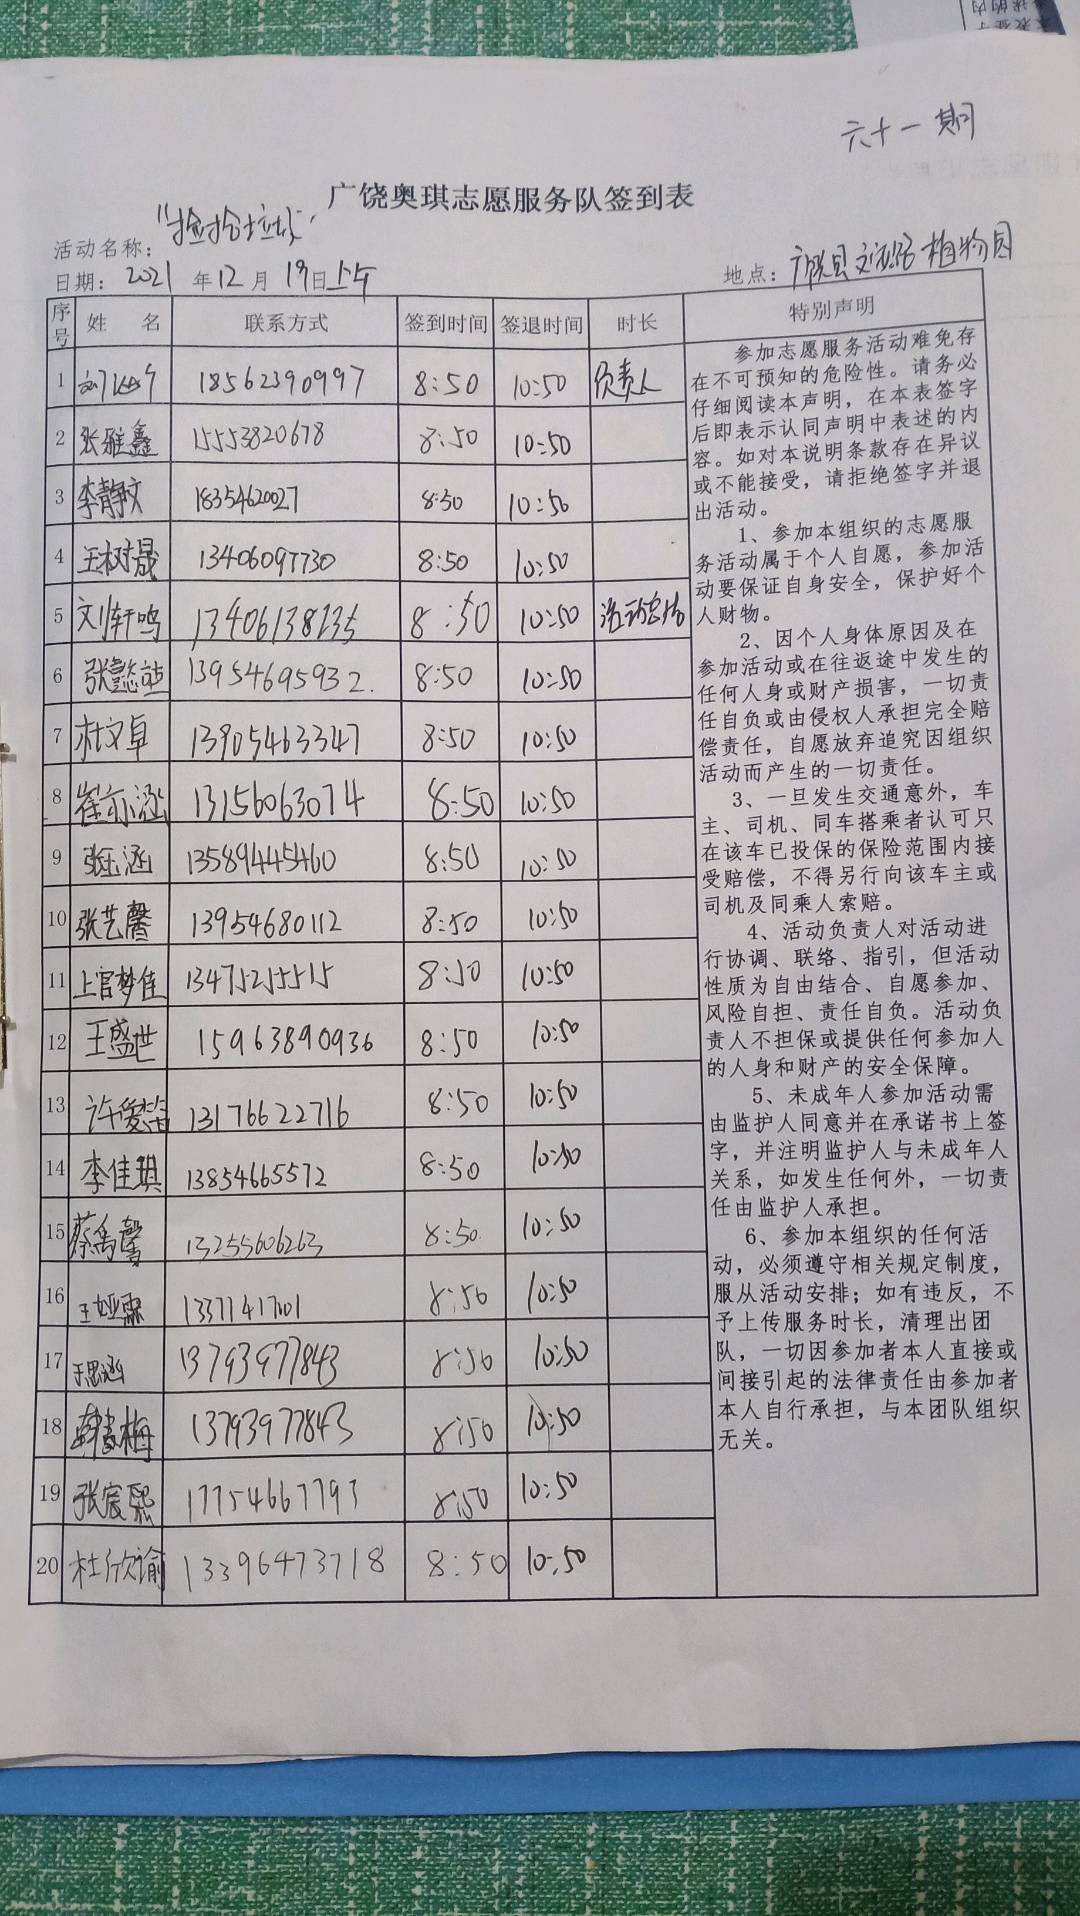 六十一期
广饶奥琪志愿服务队签到表
活动名称： "捡拾垃圾"
日期： 2021 年 12 月 19 日上午 地点： 广饶县 植物园
序号 姓 名 联系方式 签到时间 签退时间 时长 特别声明
1 18562390997 8:50 10:50 负责人
2 张雅鑫 15553820678 8:50 10:50
3 李静文 18354620027 8:50 10:50
4 王树晟 13406097730 8:50 10:50
5 刘轩鸣 13406138235 8:50 10:50
6 张懿喆 13954695932 8:50 10:50
7 杜文卓 13905463347 8:50 10:50
8 崔亦涵 13156063074 8:50 10:50
9 张玉涵 13589445460 8:50 10:50
10 张艺馨 13954680112 8:50 10:50
11 上官梦佳 13475255515 8:50 10:50
12 王盛世 15963890936 8:50 10:50
13 13176622716 8:50 10:50
14 李佳琪 13854665572 8:50 10:50
15 蔡禹馨 13255606263 8:50 10:50
16 王娅霖 8:50 10:50
17 于思涵 13793977843 8:50 10:50
18 13793977843 8:50 10:50
19 张宸熙 17754667793 8:50 10:50
20 杜欣谕 13396473718 8:50 10:50
参加志愿服务活动难免存
在不可预知的危险性。请务必
仔细阅读本声明，在本表签字
后即表示认同声明中表述的内
容。如对本说明条款存在异议
或不能接受，请拒绝签字并退
出活动。
1、参加本组织的志愿服
务活动属于个人自愿，参加活
动要保证自身安全，保护好个
人财物。
2、因个人身体原因及在
参加活动或在往返途中发生的
任何人身或财产损害，一切责
任自负或由侵权人承担完全赔
偿责任，自愿放弃追究因组织
活动而产生的一切责任。
3、一旦发生交通意外，车
主、司机、同车搭乘者认可只
在该车已投保的保险范围内接
受赔偿，不得另行向该车主或
司机及同乘人索赔。
4、活动负责人对活动进
行协调、联络、指引，但活动
性质为自由结合、自愿参加、
风险自担、责任自负。活动负
责人不担保或提供任何参加人
的人身和财产的安全保障。
5、未成年人参加活动需
由监护人同意并在承诺书上签
字，并注明监护人与未成年人
关系，如发生任何外，一切责
任由监护人承担。
6、参加本组织的任何活
动，必须遵守相关规定制度，
服从活动安排；如有违反，不
予上传服务时长，清理出团
队，一切因参加者本人直接或
间接引起的法律责任由参加者
本人自行承担，与本团队组织
无关。